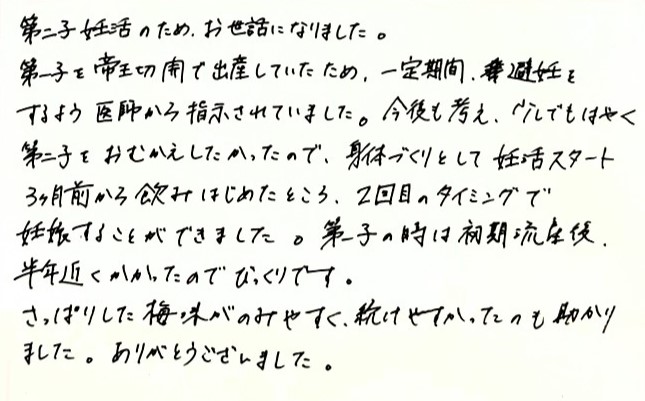 第二子妊活のため、お世話になりました。
第一子を帝王切開で出産していたため、一定期間、避妊を
するよう医師から指示されていました。今後も考え、少しでもはやく
第二子をおむかえしたかったので、身体づくりとして妊活スタート
3ヶ月前から飲みはじめたところ、2回目のタイミングで
妊娠することができました。第一子の時は初期流産後、
半年近くかかったのでびっくりです。
さっぱりした梅味がのみやすく、続けやすかったのも助かり
ました。ありがとうございました。